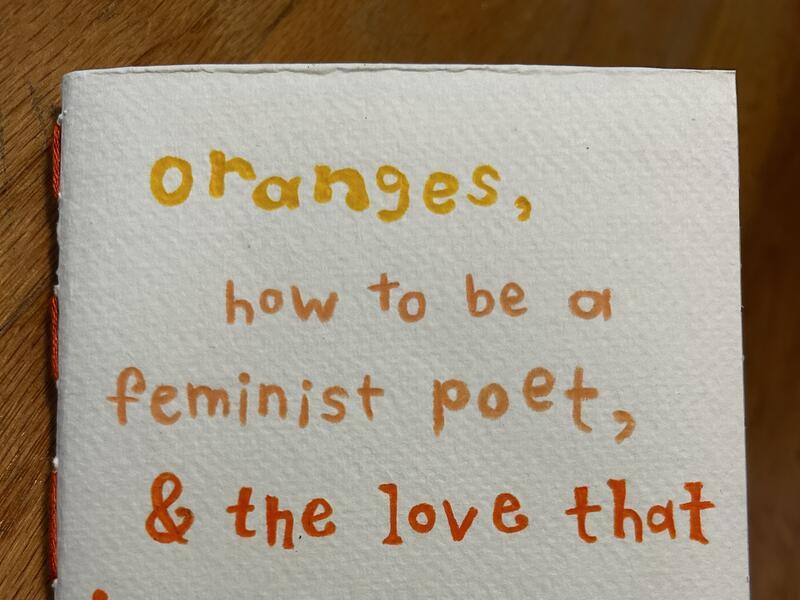 oranges,
how to be a
feminist poet,
& the love that